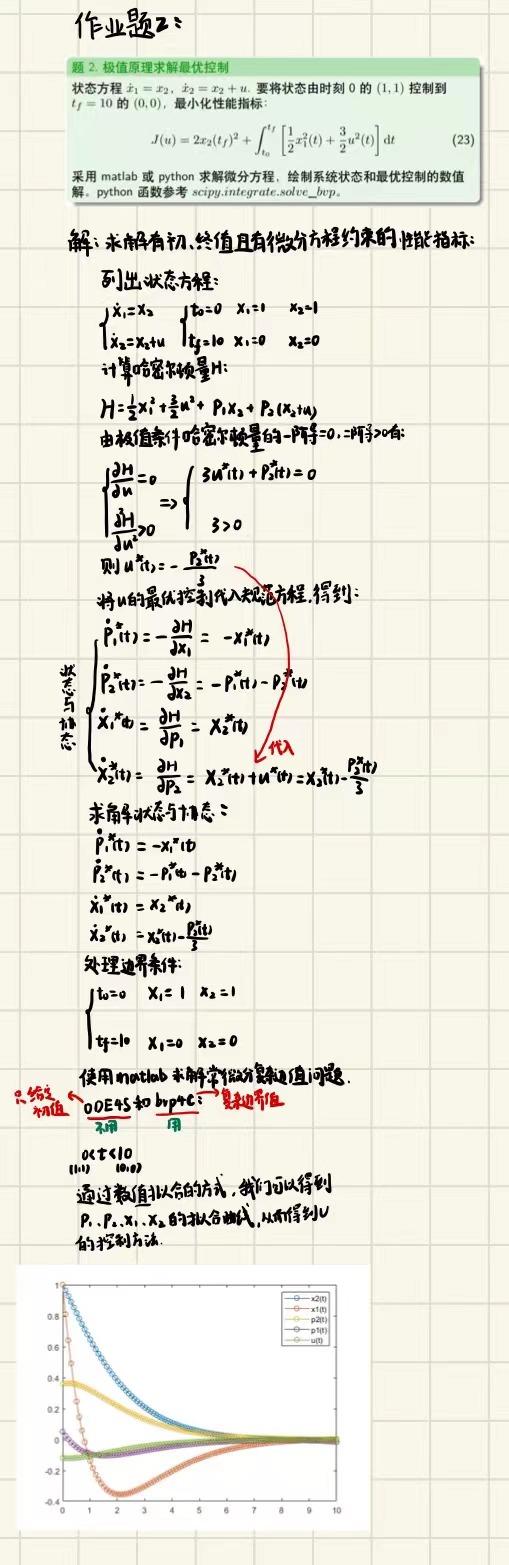 作业题2:
题 2. 极值原理求解最优控制
状态方程 ẋ₁ = x₂, ẋ₂ = x₂ + u. 要将状态由时刻 0 的 (1,1) 控制到
t_f = 10 的 (0,0), 最小化性能指标:
J(u) = 2x₂(t_f)² + ∫_{t₀}^{t_f} [1/2 x₁²(t) + 3/2 u²(t)] dt (23)
采用 matlab 或 python 求解微分方程, 绘制系统状态和最优控制的数值
解。python 函数参考 scipy.integrate.solve_bvp。
解: 求解有初、终值且有微分方程约束的性能指标:
列出状态方程:
ẋ₁=x₂ t₀=0 x₁=1 x₂=1
ẋ₂=x₂+u t_f=10 x₁=0 x₂=0
计算哈密尔顿量H:
H=½x₁²+3/2u²+P₁x₂+P₂(x₂+u)
由极值条件哈密尔顿量的一阶导=0,二阶导>0有:
∂H/∂u=0 ⇒ 3u*(t)+P₂*(t)=0
∂²H/∂u²>0 3>0
则u*(t)=-P₂*(t)/3
将u的最优控制代入规范方程,得到:
状态与协态
Ṗ₁*(t)=-∂H/∂x₁=-x₁*(t)
Ṗ₂*(t)=-∂H/∂x₂=-P₁*(t)-P₂*(t)
ẋ₁*(t)=∂H/∂P₁=x₂*(t)
代入
ẋ₂*(t)=∂H/∂P₂=x₂*(t)+u*(t)=x₂*(t)-P₂*(t)/3
求解状态与协态:
Ṗ₁*(t)=-x₁*(t)
Ṗ₂*(t)=-P₁*(t)-P₂*(t)
ẋ₁*(t)=x₂*(t)
ẋ₂*(t)=x₂*(t)-P₂*(t)/3
处理边界条件:
t₀=0 x₁=1 x₂=1
t_f=10 x₁=0 x₂=0
使用matlab求解常微分复杂边值问题.
只给定初值 ODE45和bvp4c: 复杂边界值
不用 用
0<t<10
(1,1) (0,0)
通过数值拟合的方式,我们可以得到
P₁、P₂、x₁、x₂的拟合曲线,从而得到U
的控制方法.
1
0.8
0.6
0.4
0.2
0
-0.2
-0.4
0 1 2 3 4 5 6 7 8 9 10
x2(t)
x1(t)
p2(t)
p1(t)
u(t)